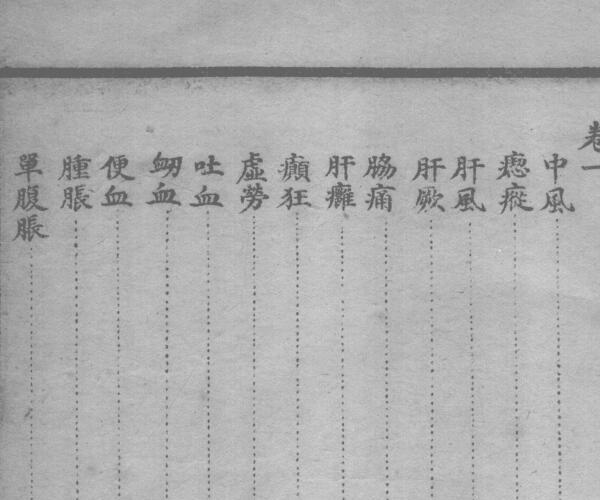 卷一
中風
瘛瘲
肝風
肝厥
脇痛
肝癰
癲狂
虛勞
吐血
衂血
便血
腫脹
單腹脹